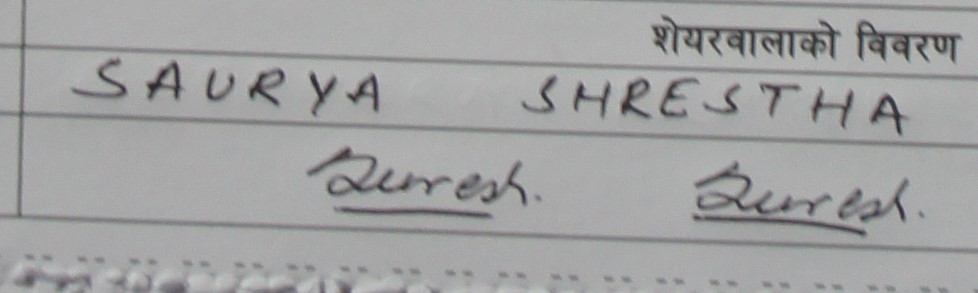 शेयरवालाको विवरण
SAURYA SHRESTHA
Suresh. Suresh.